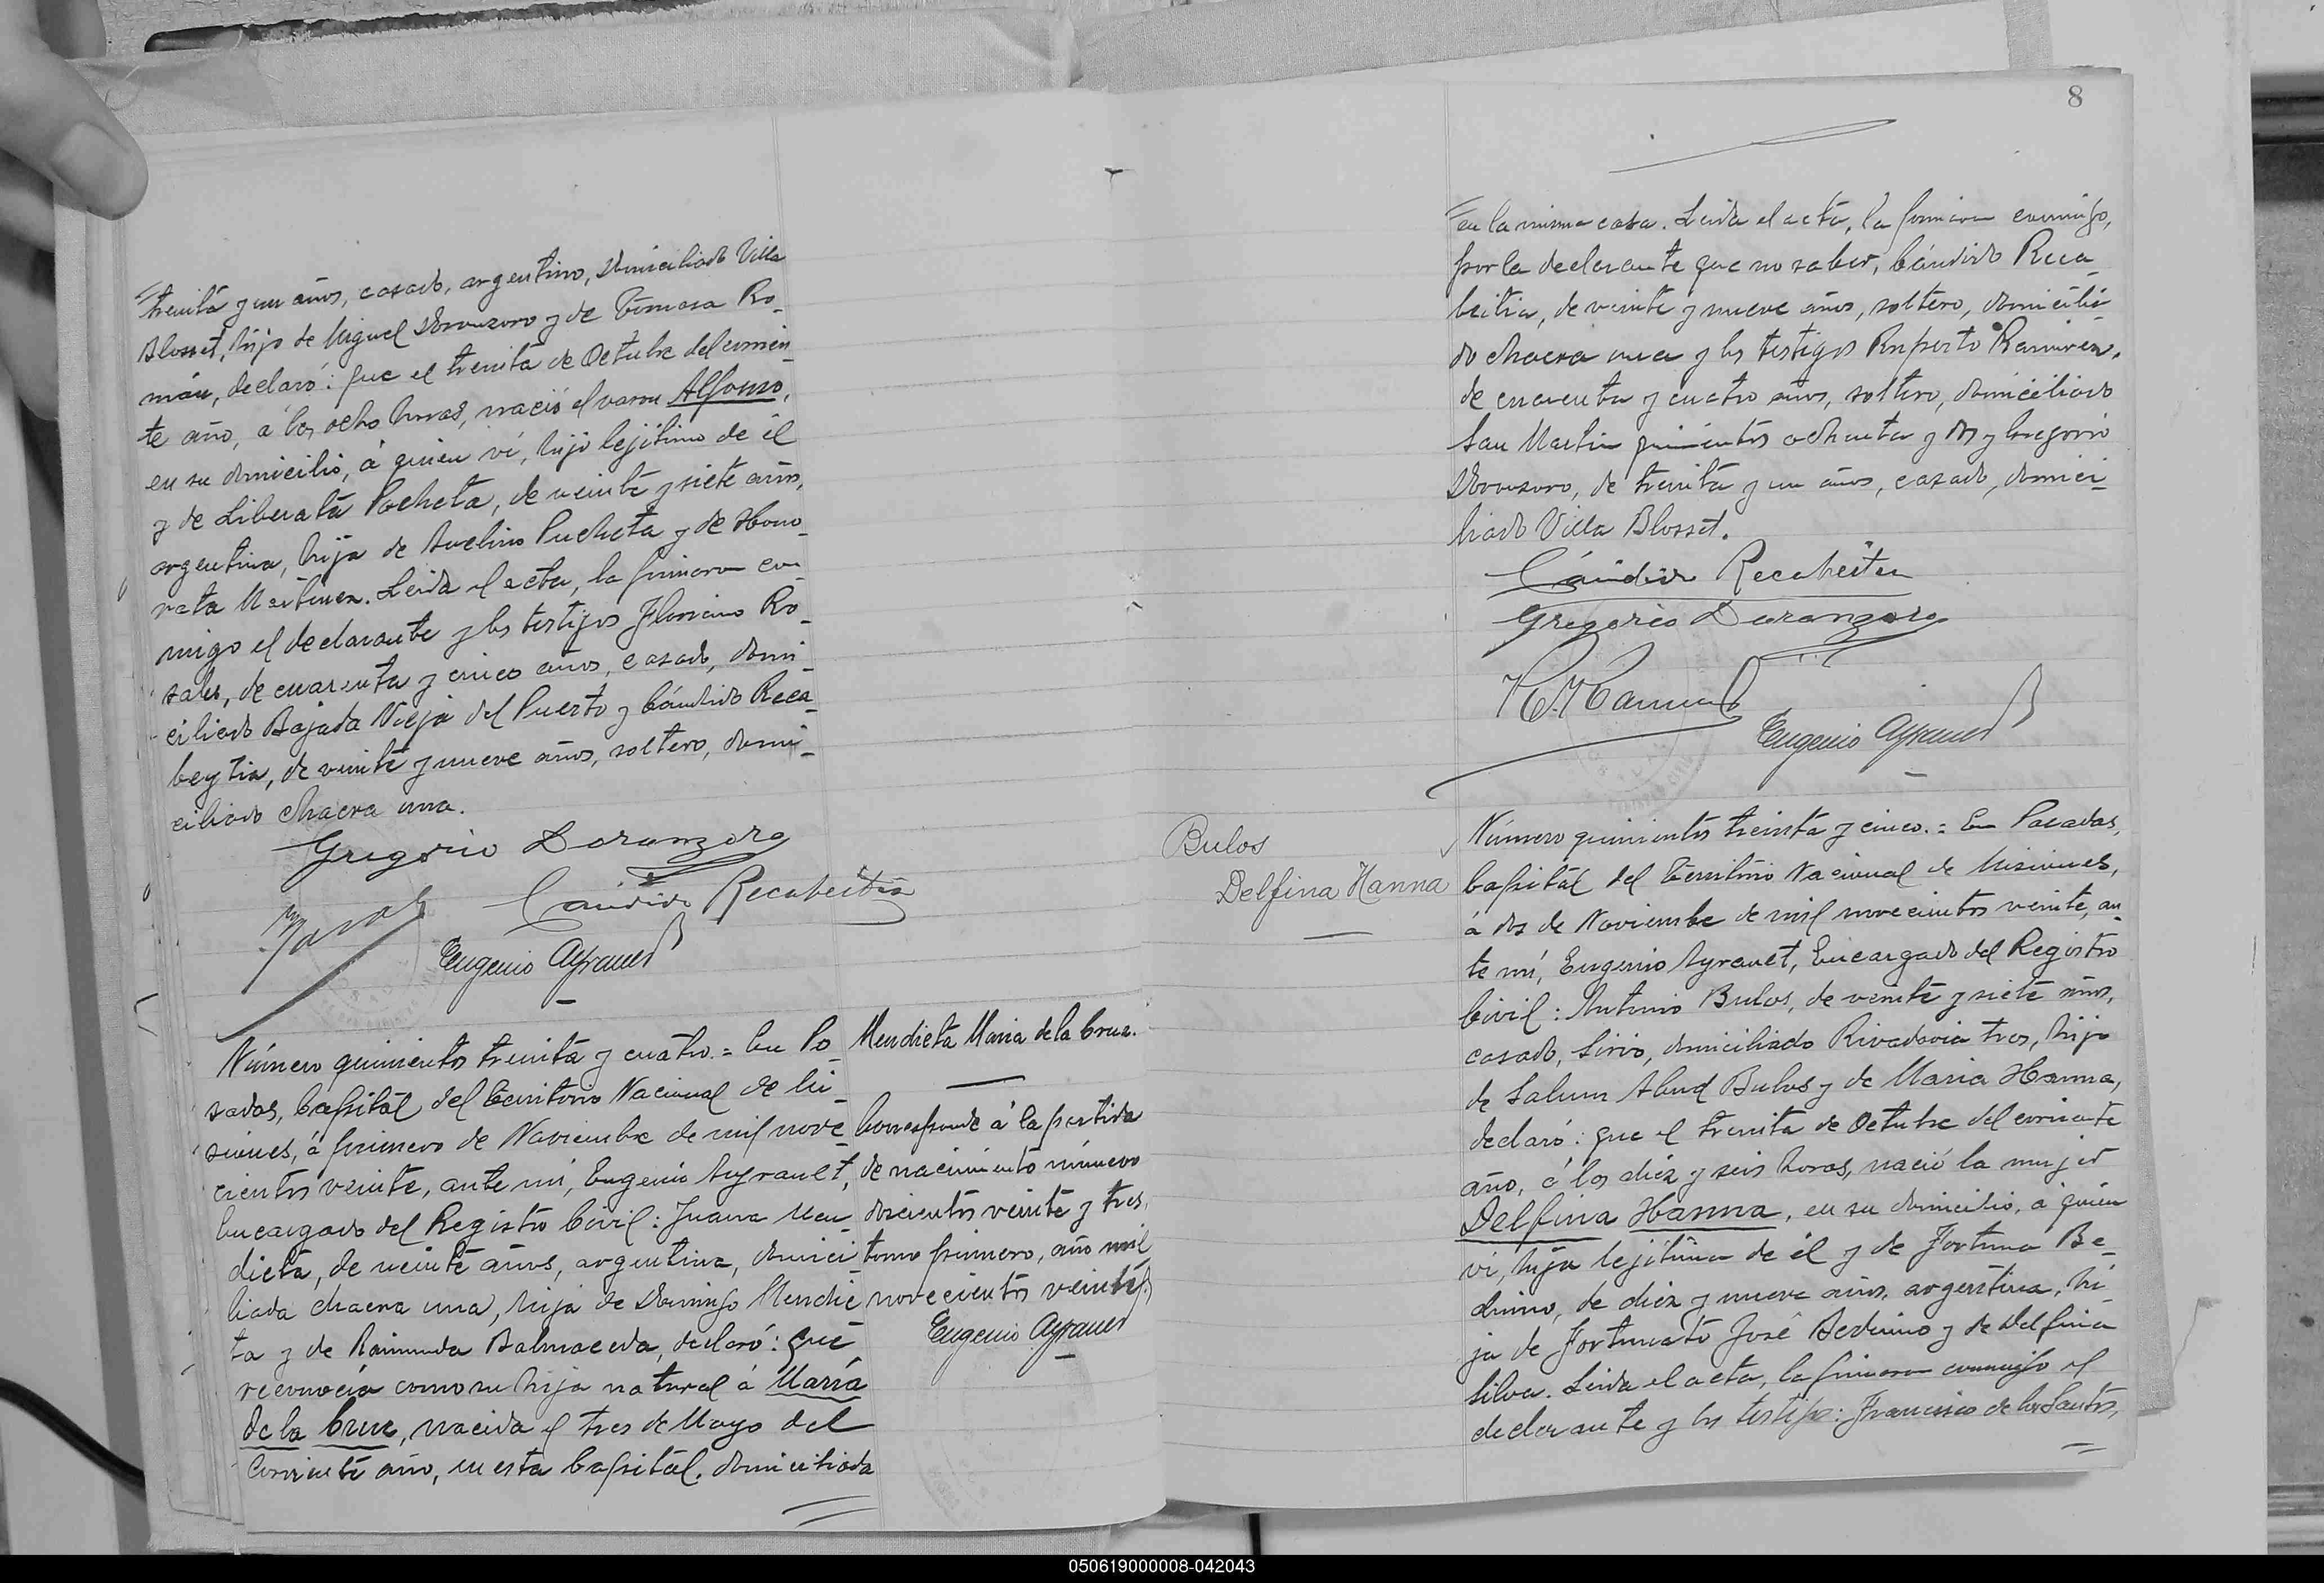 treinta y un años, casado, argentino, domiciliado Villa
Blosset, hijo de Miguel Doronzoro y de Tomasa Ro_
mán, declaró: que el treinta de Octubre del corrien_
te año, á las ocho horas, nació el varon Alfonso,
en su domicilio, á quien ví, hijo lejítimo de él
y de Liberata Pocheta, de veinte y siete años,
argentina, hija de Avelino Pucheta y de Hono_
rata Martinez. Leida el acta, la firmaron con_
migo el declarante y los testigos Floriano Ro_
sales, de cuarenta y cinco años, casado, domi_
ciliado Bajada Vieja del Puerto y Cándido Reca_
beytia, de veinte y nueve años, soltero, domi_
ciliado chacra una.
Gregorio Doronzoro
Candido Recabeitia
Eugenio Ayrault
Número quinientos treinta y cuatro. = En Po_
sadas, Capital del Territorio Nacional de Mi_
siones, á primero de Noviembre de mil nove_
cientos veinte, ante mí, Eugenio Ayrault,
Encargado del Registro Civil: Juana Men_
dieta, de veinte años, argentina, domici_
liada chacra una, hija de Domingo Mendie_
ta y de Raimunda Balmaceda, declaró: que
reconocía como su hija natural á María
de la Cruz, nacida el tres de Mayo del
corriente año, en esta Capital, domiciliada
Mendieta Maria de la Cruz.
Corresponde á la partida
de nacimiento número
doscientos veinte y tres,
tomo primero, año mil
novecientos veinte.
Eugenio Ayrault
8
en la misma casa. Leida el acta, la firmaron conmigo,
por la declarante que no saber, Cándido Reca_
beitia, de veinte y nueve años, soltero, domicilia_
do chacra una y los testigos Ruperto Ramirez,
de cuarenta y cuatro años, soltero, domiciliado
San Martin quinientos ochenta y dos y Gregorio
Doronzoro, de treinta y un años, casado, domici_
liado Villa Blosset.
Cándido Recabeitia
Gregorio Doronzoro
Eugenio Ayrault
Bulos
Delfina Hanna
Número quinientos treinta y cinco. = En Posadas,
Capital del Territorio Nacional de Misiones,
á dos de Noviembre de mil novecientos veinte, an_
te mí, Eugenio Ayrault, Encargado del Registro
Civil: Antonio Bulos, de veinte y siete años,
casado, Sirio, domiciliado Rivadavia tres, hijo
de Salum Abud Bulos y de Maria Hanna,
declaró: que el treinta de Octubre del corriente
año, á las diez y seis horas, nació la mujer
Delfina Hanna, en su domicilio, á quien
ví, hija lejítima de él y de Fortuna Be_
dmino, de diez y nueve años, argentina, hi_
ja de Fortunato José Bedmino y de Delfina
Silva. Leida el acta, la firmaron conmigo el
declarante y los testigos: Francisco de los Santos,
050619000008-042043